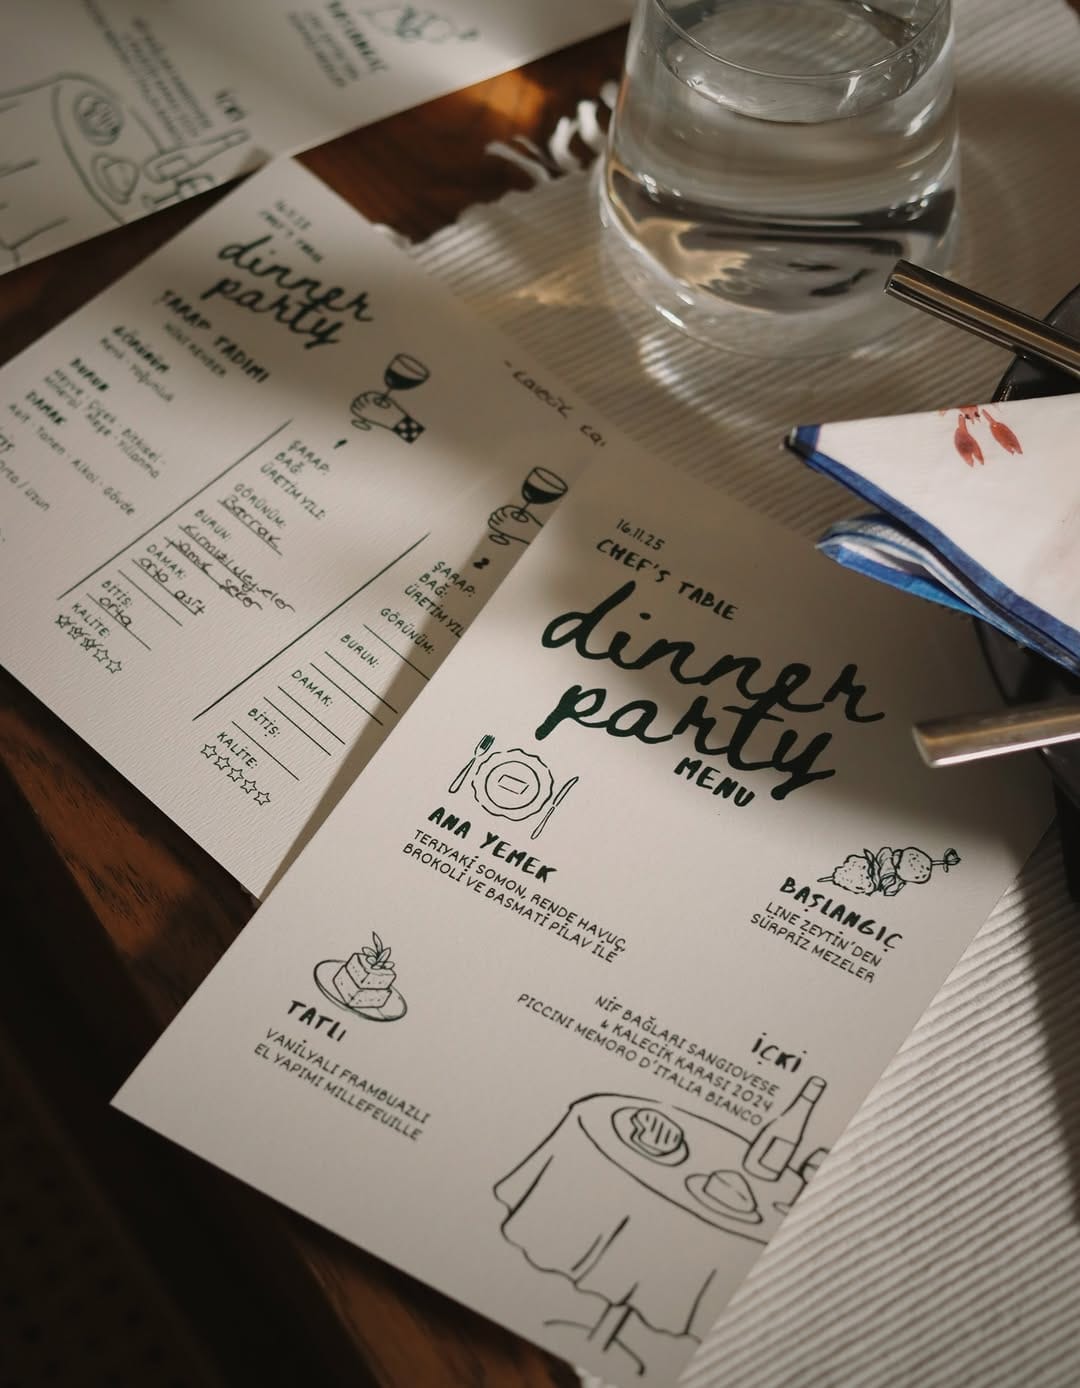 16.11.25
CHEF'S TABLE
dinner
party
MENU
ANA YEMEK
TERİYAKİ SOMON, RENDE HAVUÇ,
BROKOLİ VE BASMATİ PİLAV İLE
BAŞLANGIÇ
LINE ZEYTİN'DEN
SÜRPRİZ MEZELER
TATLI
VANİLYALI FRAMBUAZLI
EL YAPIMI MILLEFEUILLE
İÇKİ
NİF BAĞLARI SANGIOVESE
& KALECİK KARASI 2024
PICCINI MEMORO D'ITALIA BIANCO
16.11.25
CHEF'S TABLE
dinner
party
ŞARAP TADIMI
MİNİ REHBER
GÖRÜNÜM
Renk · Yoğunluk
BURUN
Meyve · Çiçek · Bitkisel ·
Mineral · Meşe · Yıllanma
DAMAK
Asit · Tanen · Alkol · Gövde
Orta / Uzun
1
ŞARAP:
BAĞ:
ÜRETİM YILI:
GÖRÜNÜM:
Berrak
BURUN:
Kırmızı meyveler
DAMAK:
orta asit
BİTİŞ:
orta
KALİTE:
2
ŞARAP:
BAĞ:
ÜRETİM YIL
GÖRÜNÜM:
BURUN:
DAMAK:
BİTİŞ:
KALİTE:
BAŞLANGIÇ
İÇKİ